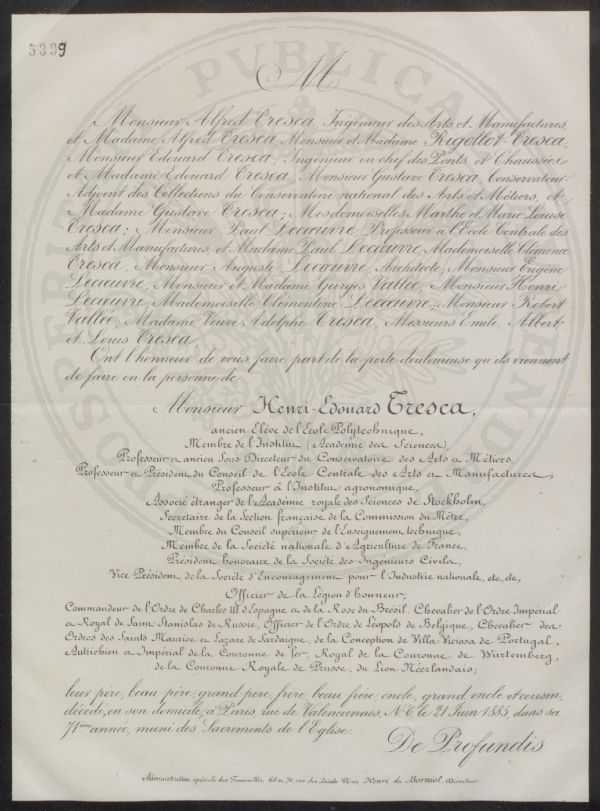 5339
PUBLICA
M
Monsieur Alfred Tresca, Ingénieur des Arts et Manufactures,
et Madame Alfred Tresca, Monsieur et Madame Rigollot-Tresca,
Monsieur Edouard Tresca, Ingénieur en chef des Ponts et Chaussées
et Madame Edouard Tresca, Monsieur Gustave Tresca, Conservateur-
Adjoint des Collections du Conservatoire national des Arts et Métiers, et
Madame Gustave Tresca; Mesdemoiselles Marthe et Marie Louise
Tresca; Monsieur Paul Lecœuvre, Professeur à l'Ecole Centrale des
Arts et Manufactures, et Madame Paul Lecœuvre, Mademoiselle Clémence
Tresca, Monsieur Auguste Lecœuvre, Architecte, Monsieur Eugène
Lecœuvre, Monsieur et Madame Gorges Vallée, Monsieur Henri
Lecœuvre, Mademoiselle Clémentine Lecœuvre, Monsieur Robert
Vallée, Madame Veuve Adolphe Tresca, Messieurs Emile, Albert
et Louis Tresca,
Ont l'honneur de vous faire part de la perte douloureuse qu'ils viennent
de faire en la personne de
Monsieur Henri-Edouard Tresca,
ancien Elève de l'Ecole Polytechnique,
Membre de l'Institut (Académie des Sciences),
Professeur et ancien Sous-Directeur du Conservatoire des Arts et Métiers,
Professeur et Président du Conseil de l'Ecole Centrale des Arts et Manufactures,
Professeur à l'Institut agronomique,
Associé étranger de l'Académie royale des Sciences de Stockholm,
Secrétaire de la Section française de la Commission du Mètre,
Membre du Conseil supérieur de l'Enseignement technique,
Membre de la Société nationale d'Agriculture de France,
Président honoraire de la Société des Ingénieurs Civils,
Vice Président de la Société d'Encouragement pour l'Industrie nationale, etc, etc,
Officier de la Légion d'honneur;
Commandeur de l'Ordre de Charles III d'Espagne et de la Rose du Brésil, Chevalier de l'Ordre Impérial
et Royal de Saint Stanislas de Russie, Officier de l'Ordre de Léopold de Belgique, Chevalier des
Ordres des Saints Maurice et Lazare de Sardaigne, de la Conception de Villa Viciosa de Portugal,
Autrichien et Impérial de la Couronne de fer, Royal de la Couronne de Wurtemberg,
de la Couronne Royale de Prusse, du Lion Néerlandais;
leur père, beau père, grand père, frère, beau frère, oncle, grand oncle et cousin,
décédé, en son domicile, à Paris, rue de Valenciennes, N° 6, le 21 Juin 1885, dans sa
71ème année, muni des Sacrements de l'Eglise.
De Profundis
Administration spéciale des Funérailles, 68 et 70, rue des Saints Pères, Henri de Borniol, Directeur